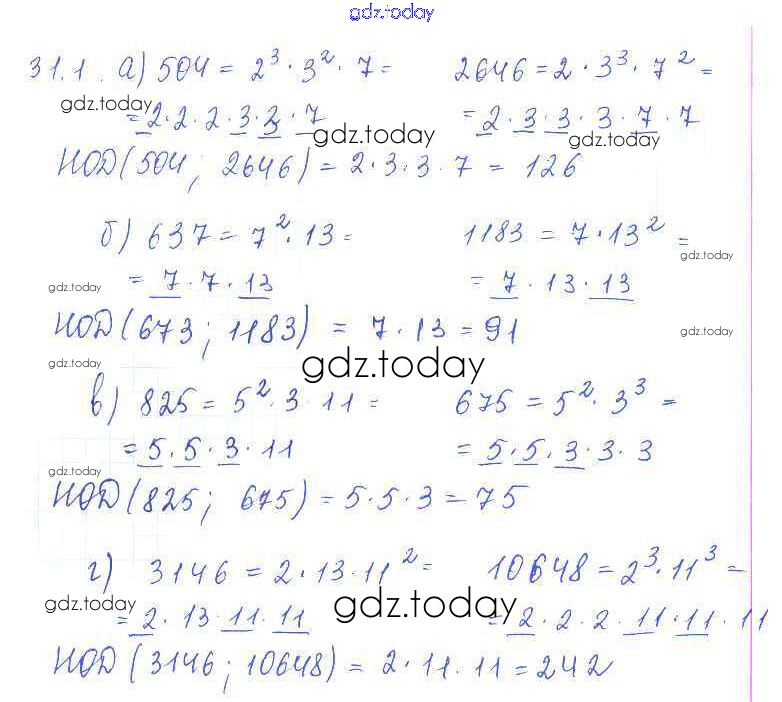 gdz.today
31.1. а) 504 = 2³ · 3² · 7 = 2646 = 2 · 3³ · 7² =
gdz.today
= 2 · 2 · 2 · 3 · 3 · 7 = 2 · 3 · 3 · 3 · 7 · 7
gdz.today gdz.today
НОД(504; 2646) = 2 · 3 · 3 · 7 = 126
б) 637 = 7² · 13 = 1183 = 7 · 13² =
gdz.today
= 7 · 7 · 13 = 7 · 13 · 13
gdz.today
НОД(673; 1183) = 7 · 13 = 91
gdz.today
gdz.today gdz.today
в) 825 = 5² · 3 · 11 = 675 = 5² · 3³ =
= 5 · 5 · 3 · 11 = 5 · 5 · 3 · 3 · 3
gdz.today
НОД(825; 675) = 5 · 5 · 3 = 75
г) 3146 = 2 · 13 · 11² = 10648 = 2³ · 11³ =
gdz.today gdz.today
= 2 · 13 · 11 · 11 = 2 · 2 · 2 · 11 · 11 · 11
НОД(3146; 10648) = 2 · 11 · 11 = 242